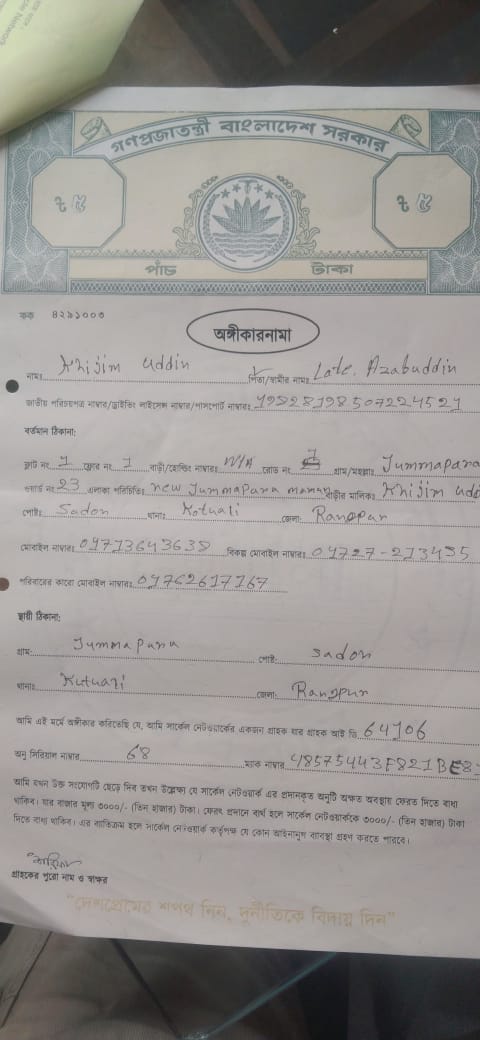 গণপ্রজাতন্ত্রী বাংলাদেশ সরকার
৳ ৫ ৳ ৫
পাঁচ টাকা
কক ৪২৯১০০৩
অঙ্গীকারনামা
নামঃ Khijim uddin পিতা/স্বামীর নামঃ Late. Azabuddin
জাতীয় পরিচয়পত্র নাম্বার/ড্রাইভিং লাইসেন্স নাম্বার/পাসপোর্ট নাম্বারঃ 19828198507224521
বর্তমান ঠিকানা:
ফ্লাট নং 1 ফ্লোর নং 1 বাড়ী/হোল্ডিং নাম্বারঃ N/A রোড নং 1 গ্রাম/মহল্লাঃ Jummapara
ওয়ার্ড নং 23 এলাকা পরিচিতিঃ new Jummapara বাড়ীর মালিকঃ Khijim udd
পোষ্টঃ Sadon থানাঃ Kotuali জেলাঃ Rangpur
মোবাইল নাম্বারঃ 01713643638 বিকল্প মোবাইল নাম্বারঃ 01727-213435
পরিবারের কারো মোবাইল নাম্বারঃ 01762617167
স্থায়ী ঠিকানা:
গ্রাম: Jummapara পোষ্ট: Sadon
থানাঃ Kutuali জেলা: Rangpur
আমি এই মর্মে অঙ্গীকার করিতেছি যে, আমি সার্কেল নেটওয়ার্কের একজন গ্রাহক যার গ্রাহক আই ডি 64106
অনু সিরিয়াল নাম্বার 68 ম্যাক নাম্বার 48575443F821BE8
আমি যখন উক্ত সংযোগটি ছেড়ে দিব তখন উল্লেক্ষ্য যে সার্কেল নেটওয়ার্ক এর প্রদানকৃত অনুটি অক্ষত অবস্থায় ফেরত দিতে বাধ্য
থাকিব। যার বাজার মূল্য ৩০০০/- (তিন হাজার) টাকা। ফেরৎ প্রদানে ব্যর্থ হলে সার্কেল নেটওয়ার্ককে ৩০০০/- (তিন হাজার) টাকা
দিতে বাধ্য থাকিব। এর ব্যতিক্রম হলে সার্কেল নেটওয়ার্ক কর্তৃপক্ষ যে কোন আইনানুগ ব্যবস্থা গ্রহণ করতে পারবে।
গ্রাহকের পুরো নাম ও স্বাক্ষর
"দেশপ্রেমের শপথ নিন, দুর্নীতিকে বিদায় দিন"